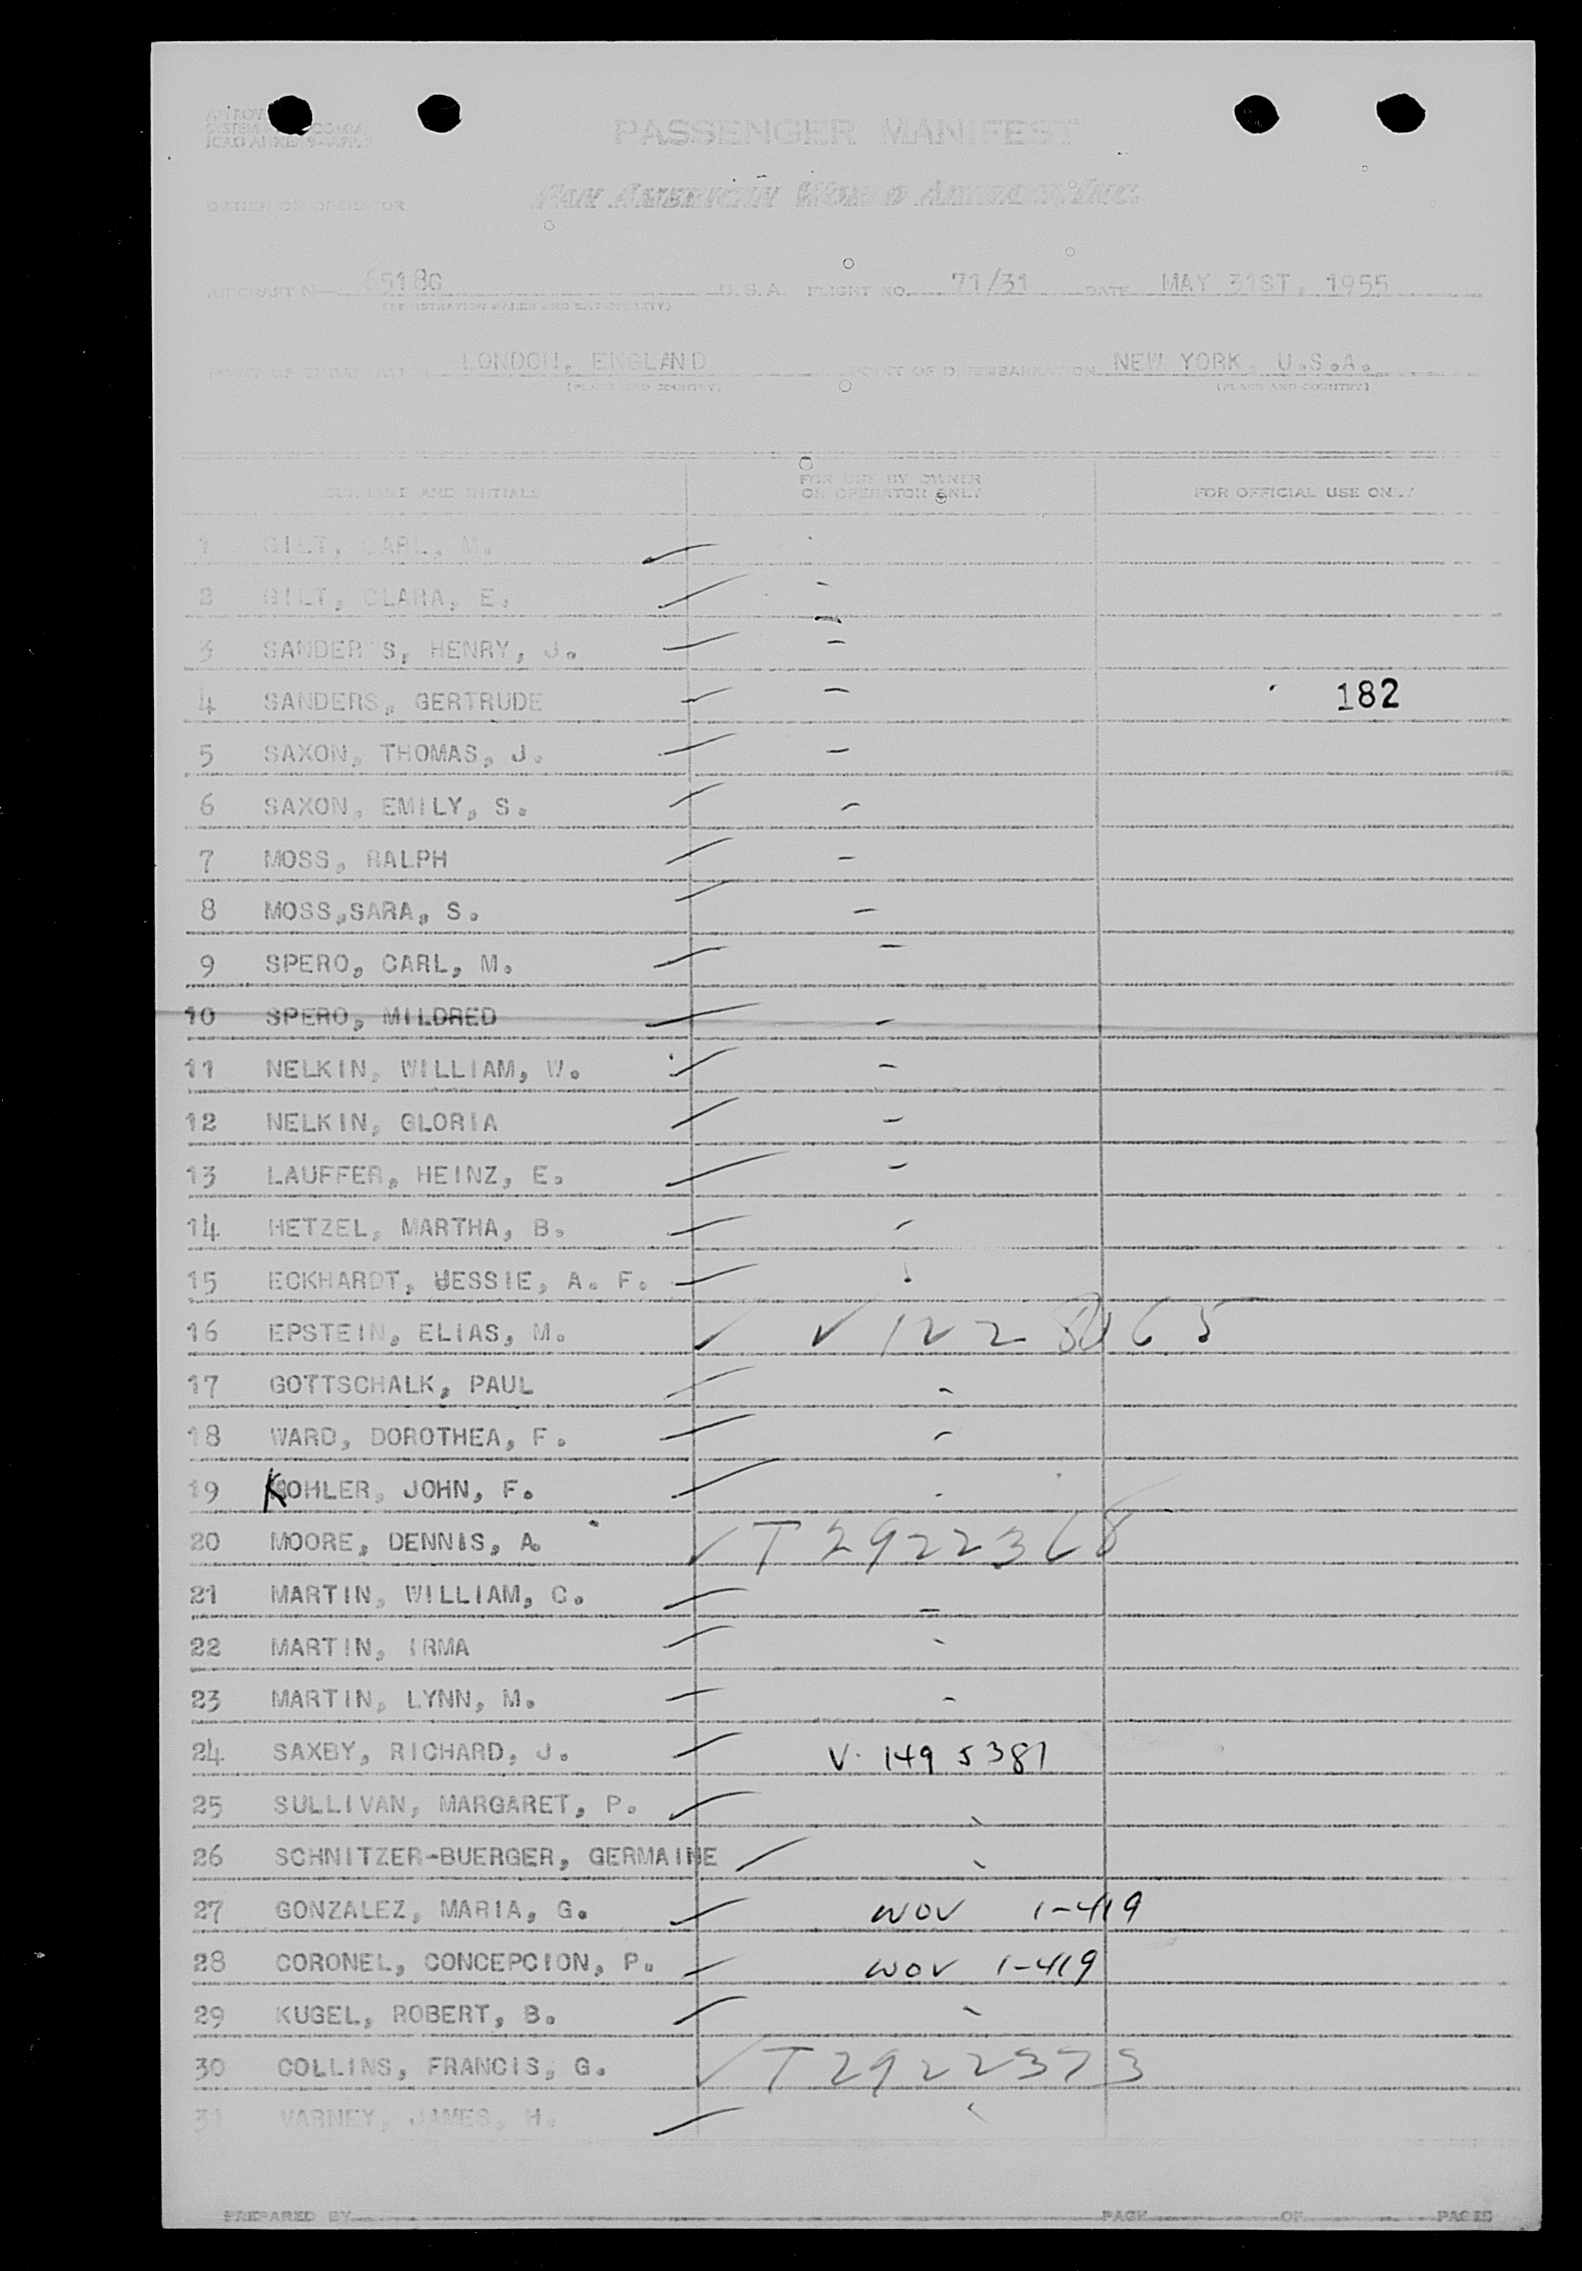 PASSENGER MANIFEST
PAN AMERICAN WORLD AIRWAYS, INC.
OWNER OR OPERATOR
AIRCRAFT N 6518C U.S.A. FLIGHT NO. 71/31 DATE MAY 31ST, 1955
LONDON, ENGLAND POINT OF DISEMBARKATION NEW YORK, U.S.A.
(PLACE AND COUNTRY) (PLACE AND COUNTRY)
SURNAME AND INITIALS FOR USE BY OWNER OR OPERATOR ONLY FOR OFFICIAL USE ONLY
1 GILT, CARL, M.
2 GILT, CLARA, E.
3 SANDERS, HENRY, J.
4 SANDERS, GERTRUDE 182
5 SAXON, THOMAS, J.
6 SAXON, EMILY, S.
7 MOSS, RALPH
8 MOSS,SARA, S.
9 SPERO, CARL, M.
10 SPERO, MILDRED
11 NELKIN, WILLIAM, W.
12 NELKIN, GLORIA
13 LAUFFER, HEINZ, E.
14 HETZEL, MARTHA, B.
15 ECKHARDT, JESSIE, A. F.
16 EPSTEIN, ELIAS, M. V 122 8065
17 GOTTSCHALK, PAUL
18 WARD, DOROTHEA, F.
19 KOHLER, JOHN, F.
20 MOORE, DENNIS, A. T 2922368
21 MARTIN, WILLIAM, C.
22 MARTIN, IRMA
23 MARTIN, LYNN, M.
24 SAXBY, RICHARD, J. V. 149 5381
25 SULLIVAN, MARGARET, P.
26 SCHNITZER-BUERGER, GERMAINE
27 GONZALEZ, MARIA, G. WOV 1-419
28 CORONEL, CONCEPCION, P. WOV 1-419
29 KUGEL, ROBERT, B.
30 COLLINS, FRANCIS, G. T 2922373
31 VARNEY, JAMES, H.
PREPARED BY PAGE OF PAGES